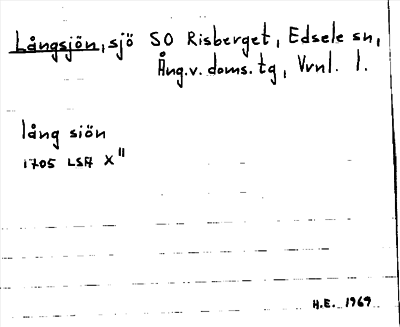 Långsjön, sjö SO Risberget, Edsele sn,
Ång.v.doms.tg, Vrnl. l.
lång siön
1705 LSA X"
H.E. 1969